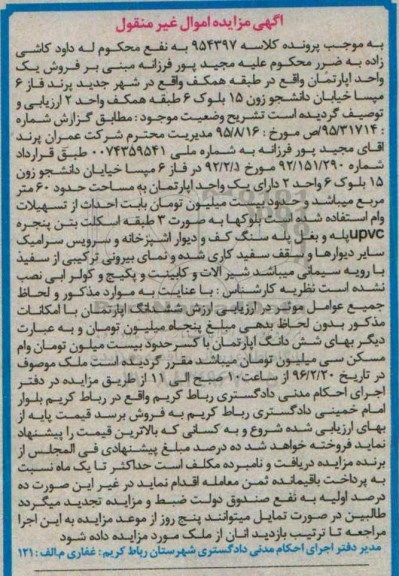 آگهی مزایده اموال غیر منقول
به موجب پرونده کلاسه ۹۵۴۳۹۷ به نفع محکوم له داود کاشی
زاده به ضرر محکوم علیه مجید پور فرزانه مبنی بر فروش یک
واحد اپارتمان واقع در طبقه همکف واقع در شهر جدید پرند فاز ۶
میسا خیابان دانشجو زون ۱۵ بلوک ۶ طبقه همکف واحد ۲ ارزیابی و
توصیف گردیده است تشریح وضعیت موجود : مطابق گزارش شماره
: ۹۵/۳۱۷۱۴/ص مورخ : ۹۵/۸/۱۶ مدیریت محترم شرکت عمران پرند
اقای مجید پور فرزانه به شماره ملی ۰۰۷۴۳۵۹۵۴۱ طبق قرارداد
شماره ۹۲/۱۵۱/۲۹۰ مورخ ۹۲/۲/۵ در فاز ۶ میسا خیابان دانشجو زون
۱۵ بلوک ۶ واحد ۲ دارای یک واحد اپارتمان به مساحت حدود ۶۰ متر
مربع میباشد و حدود بیست میلیون تومان بابت احداث از تسهیلات
وام استفاده شده است بلوکها به صورت ۳ طبقه اسکلت بتن پنجره
upvc پله و بغل پله سنگ کف و دیوار اشپزخانه و سرویس سرامیک
سایر دیوارها و سقف سفید کاری شده و نمای بیرونی ترکیبی از سفید
با رویه سیمانی میباشد شیر الات و کابینت و پکیج و کولر ابی نصب
نشده است نظریه کارشناس : با عنایت به موارد مذکور و لحاظ
جمیع عوامل موثر در ارزیابی ارزش ششدانگ اپارتمان با امکانات
مذکور بدون لحاظ بدهی مبلغ پنجاه میلیون تومان و به عبارت
دیگر بهای شش دانگ اپارتمان با کسر حدود بیست میلون تومان وام
مسکن سی میلیون تومان میباشد مقرر گردیده است ملک موصوف
در تاریخ ۹۶/۲/۲۰ از ساعت ۱۰ صبح الی ۱۱ از طریق مزایده در دفتر
اجرای احکام مدنی دادگستری رباط کریم واقع در رباط کریم بلوار
امام خمینی دادگستری رباط کریم به فروش برسد قیمت پایه از
بهای ارزیابی شده شروع و به کسانی که بالاترین قیمت را پیشنهاد
نماید فروخته خواهد شد ده درصد مبلغ پیشنهادی فی المجلس از
برنده مزایده دریافت و نامبرده مکلف است حداکثر تا یک ماه نسبت
به پرداخت باقیمانده ثمن معامله اقدام نماید در غیر این صورت ده
درصد اولیه به نفع صندوق دولت ضبط و مزایده تجدید میگردد
طالبین در صورت تمایل میتوانند پنج روز از موعد مزایده به این اجرا
مراجعه تا ترتیب بازدید انان از ملک مورد مزایده داده شود
مدیر دفتر اجرای احکام مدنی دادگستری شهرستان رباط کریم : غفاری م.الف : ۱۲۱